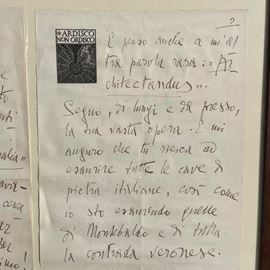 2
ARDISCO
NON ORDISCO
E penso anche a un'al
tra parola rara: "Ar
chitectandus".
Seguo, di lungi e da presso,
la tua vasta opera. E mi
auguro che tu riesca ad
esaurire tutte le cave di
pietra italiane, così come
io sto esaurendo quelle
di Montebaldo e di tutta
la contrada veronese.